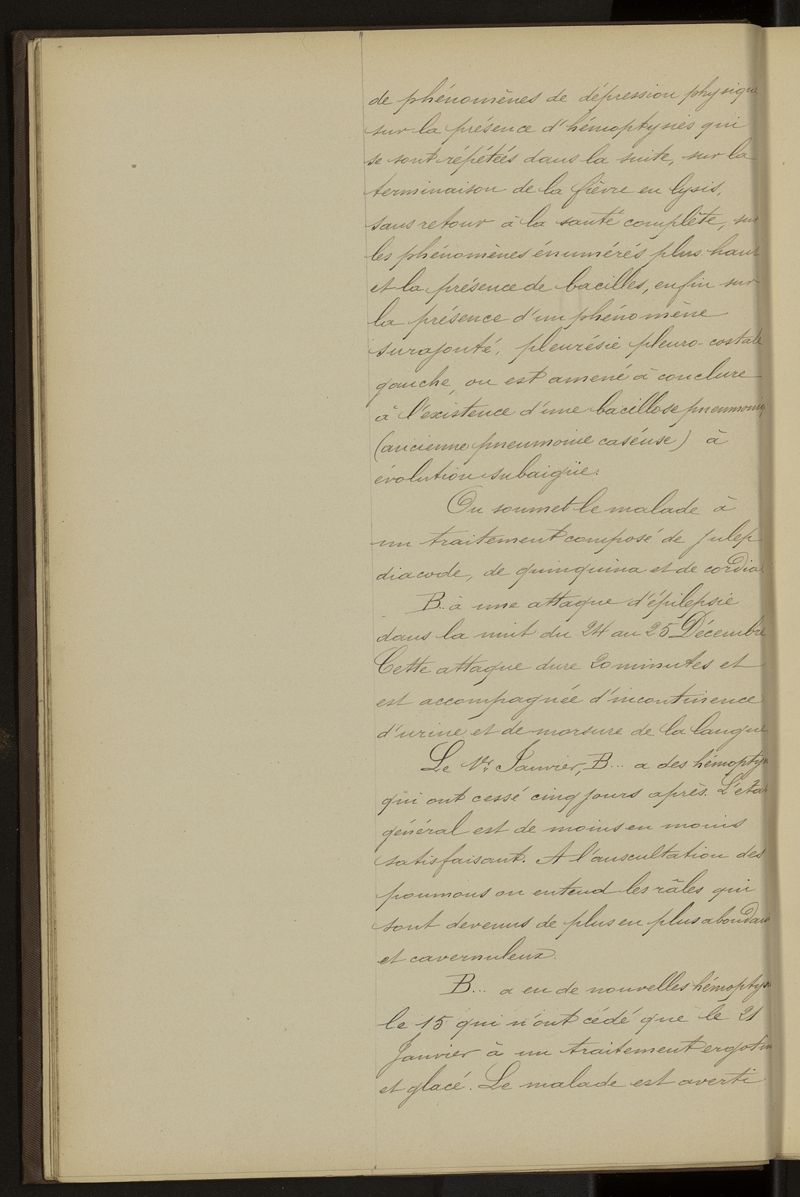 de phénomènes de dépression physique
sur la présence d'hémoptysies qui
se sont répétées dans la suite, sur la
terminaison de la fièvre en lysis,
sans retour à la santé complète, sur
les phénomènes énumérés plus haut
et la présence de bacilles, enfin sur
la présence d'un phénomène
surajouté, pleurésie pleuro-costale
gauche, on est amené à conclure
à l'existence d'une bacillose pneumoniq
(ancienne pneumonie caséuse) à
évolution subaigüe.
On soumet le malade à
un traitement composé de julep
diacode, de quinquina et de cordial
B. à une attaque d'épilepsie
dans la nuit du 24 au 25 Décembre
Cette attaque dure 20 minutes et
est accompagnée d'incontinence
d'urine et de morsure de la langue
Le 1er Janvier, B... a des hémoptys
qui ont cessé cinq jours après. L'état
général est de moins en moins
satisfaisant. A l'auscultation des
poumons on entend les râles qui
sont devenus de plus en plus abondan
et cavernuleux.
B... a eu de nouvelles hémoptys
le 15 qui n'ont cédé que le 21
Janvier à un traitement ergotin
et glacé. Le malade est averti